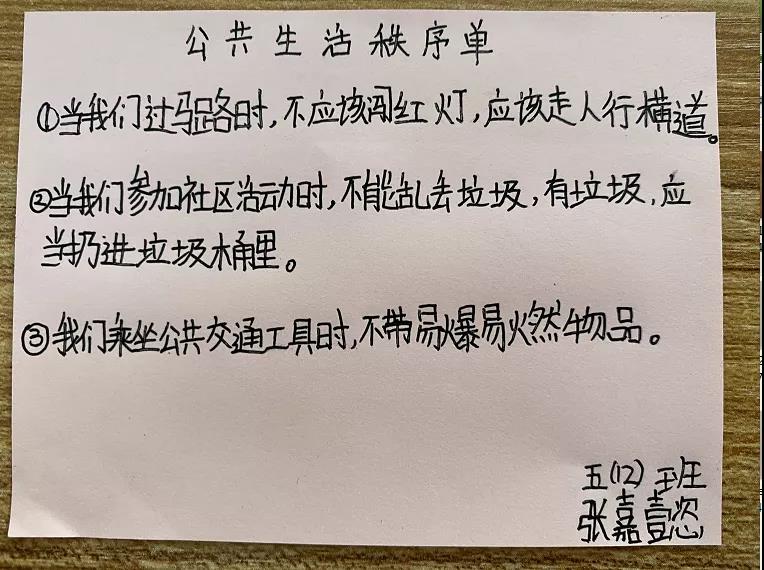 公共生活秩序单
①当我们过马路时,不应该闯红灯,应该走人行横道。
②当我们参加社区活动时,不能乱丢垃圾,有垃圾,应
当扔进垃圾桶里。
③我们乘坐公共交通工具时,不带易爆易燃物品。
五(12)班
张嘉壹恣